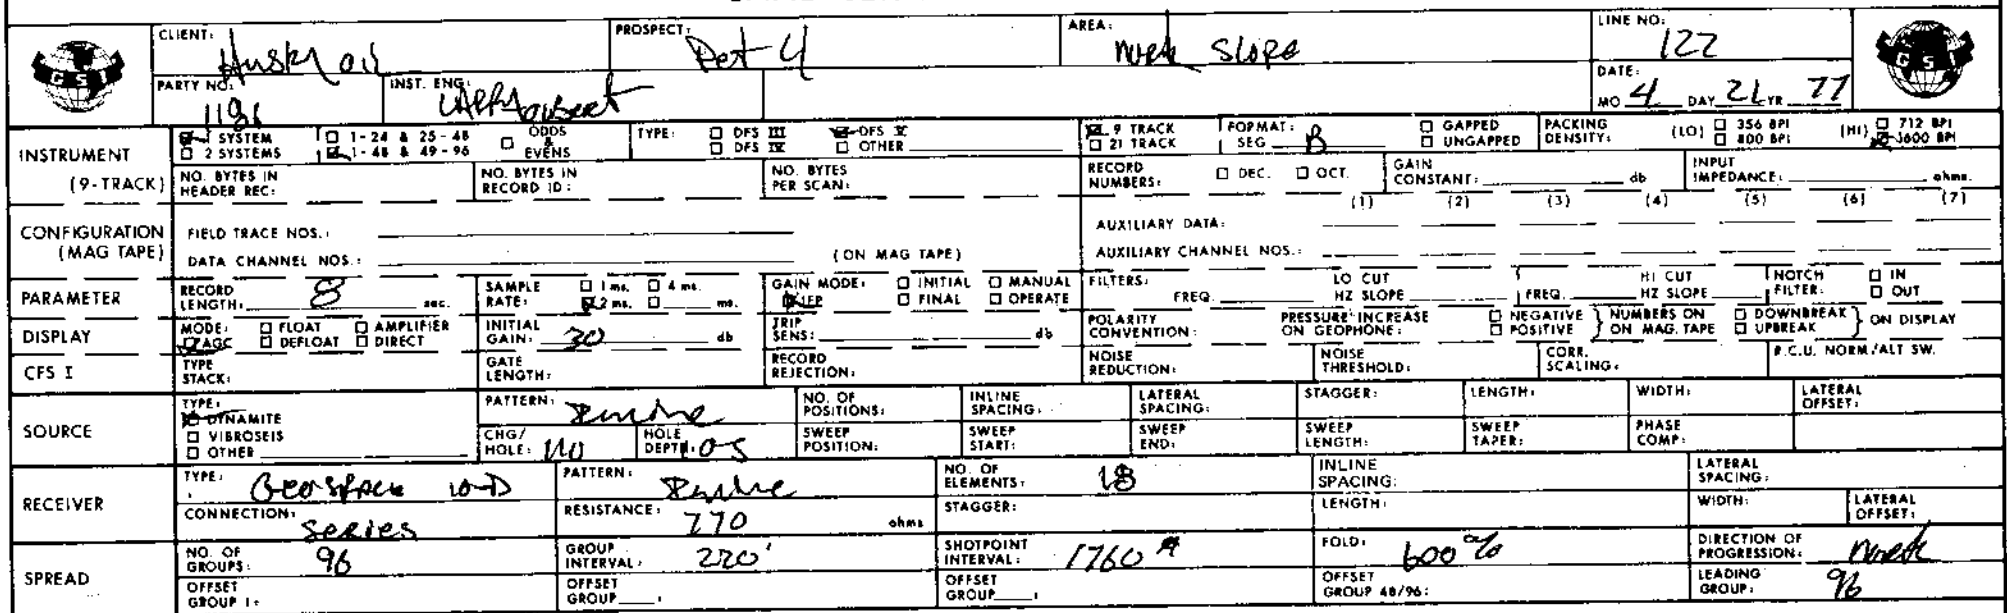 CLIENT: Husky oil PROSPECT: Pet 4 AREA: North Slope LINE NO: 122
GSI PARTY NO: 1186 INST. ENG. DATE: MO 4 DAY 21 YR 77 GSI
INSTRUMENT 1 SYSTEM 1-24 & 25-48 ODDS & EVENS TYPE: DFS III DFS V 9 TRACK FORMAT: GAPPED PACKING (LO) 356 BPI (HI) 712 BPI
2 SYSTEMS 1-48 & 49-96 DFS IV OTHER 21 TRACK SEG B UNGAPPED DENSITY: 800 BPI 1600 BPI
(9-TRACK) NO. BYTES IN HEADER REC: NO. BYTES IN RECORD ID: NO. BYTES PER SCAN: RECORD NUMBERS: DEC. OCT. GAIN CONSTANT: db INPUT IMPEDANCE: ohms.
(1) (2) (3) (4) (5) (6) (7)
CONFIGURATION FIELD TRACE NOS.: AUXILIARY DATA:
(MAG TAPE) DATA CHANNEL NOS.: (ON MAG TAPE) AUXILIARY CHANNEL NOS.:
PARAMETER RECORD LENGTH: 8 sec. SAMPLE RATE: 1 ms. 4 ms. 2 ms. ms. GAIN MODE: INITIAL MANUAL IFP FINAL OPERATE FILTERS: FREQ. LO CUT HZ SLOPE FREQ. HI CUT HZ SLOPE NOTCH FILTER: IN OUT
DISPLAY MODE: FLOAT AMPLIFIER AGC DEFLOAT DIRECT INITIAL GAIN: 30 db TRIP SENS: db POLARITY CONVENTION: PRESSURE INCREASE ON GEOPHONE: NEGATIVE POSITIVE NUMBERS ON MAG. TAPE DOWNBREAK UPBREAK ON DISPLAY
CFS I TYPE STACK: GATE LENGTH: RECORD REJECTION: NOISE REDUCTION: NOISE THRESHOLD: CORR. SCALING: P.C.U. NORM/ALT SW.
SOURCE TYPE: DYNAMITE VIBROSEIS OTHER PATTERN: Inline NO. OF POSITIONS: INLINE SPACING: LATERAL SPACING: STAGGER: LENGTH: WIDTH: LATERAL OFFSET:
CHG/HOLE: HOLE DEPTH: SWEEP POSITION: SWEEP START: SWEEP END: SWEEP LENGTH: SWEEP TAPER: PHASE COMP:
RECEIVER TYPE: Geospace 10-D PATTERN: Inline NO. OF ELEMENTS: 18 INLINE SPACING: LATERAL SPACING:
CONNECTION: series RESISTANCE: 770 ohms STAGGER: LENGTH: WIDTH: LATERAL OFFSET:
SPREAD NO. OF GROUPS: 96 GROUP INTERVAL: 220' SHOTPOINT INTERVAL: 1760 FOLD: 600% DIRECTION OF PROGRESSION: North
OFFSET GROUP 1: OFFSET GROUP : OFFSET GROUP : OFFSET GROUP 48/96: LEADING GROUP: 96